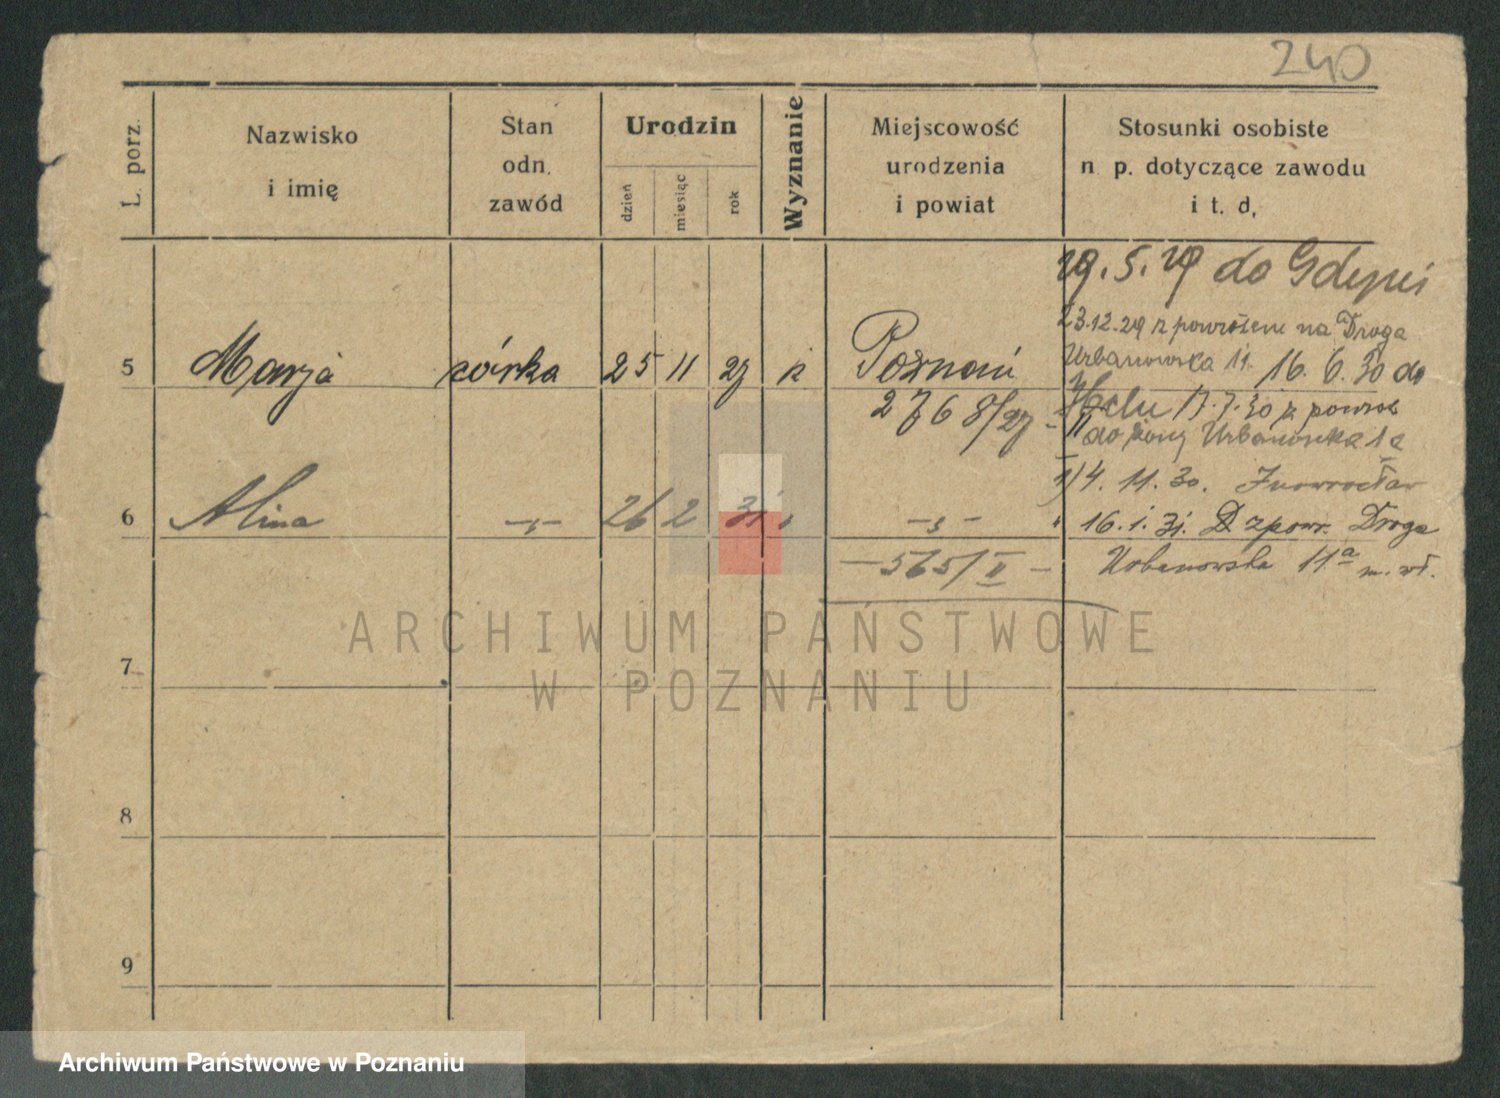 240
L. porz.
Nazwisko
i imię
Stan
odn.
zawód
Urodzin
dzień
miesiąc
rok
Wyznanie
Miejscowość
urodzenia
i powiat
Stosunki osobiste
n p. dotyczące zawodu
i t. d,
29.5.29 do Gdyni
23.12.29 z powrotem na Droga
Urbanowska 11. 16.6.30 do
5 Marja córka 25 11 27 k Poznań
2768/27 - II
Helu 17.7.30 z powrot
do żony Urbanowska 1a
4.11.30. Inowrocław
6 Alina -"- 26 2 31 " -"- "
16.1.31. z powr. Droga
-565/II-
Urbanowska 11a m. wł.
7
8
9
ARCHIWUM PAŃSTWOWE
W POZNANIU
Archiwum Państwowe w Poznaniu